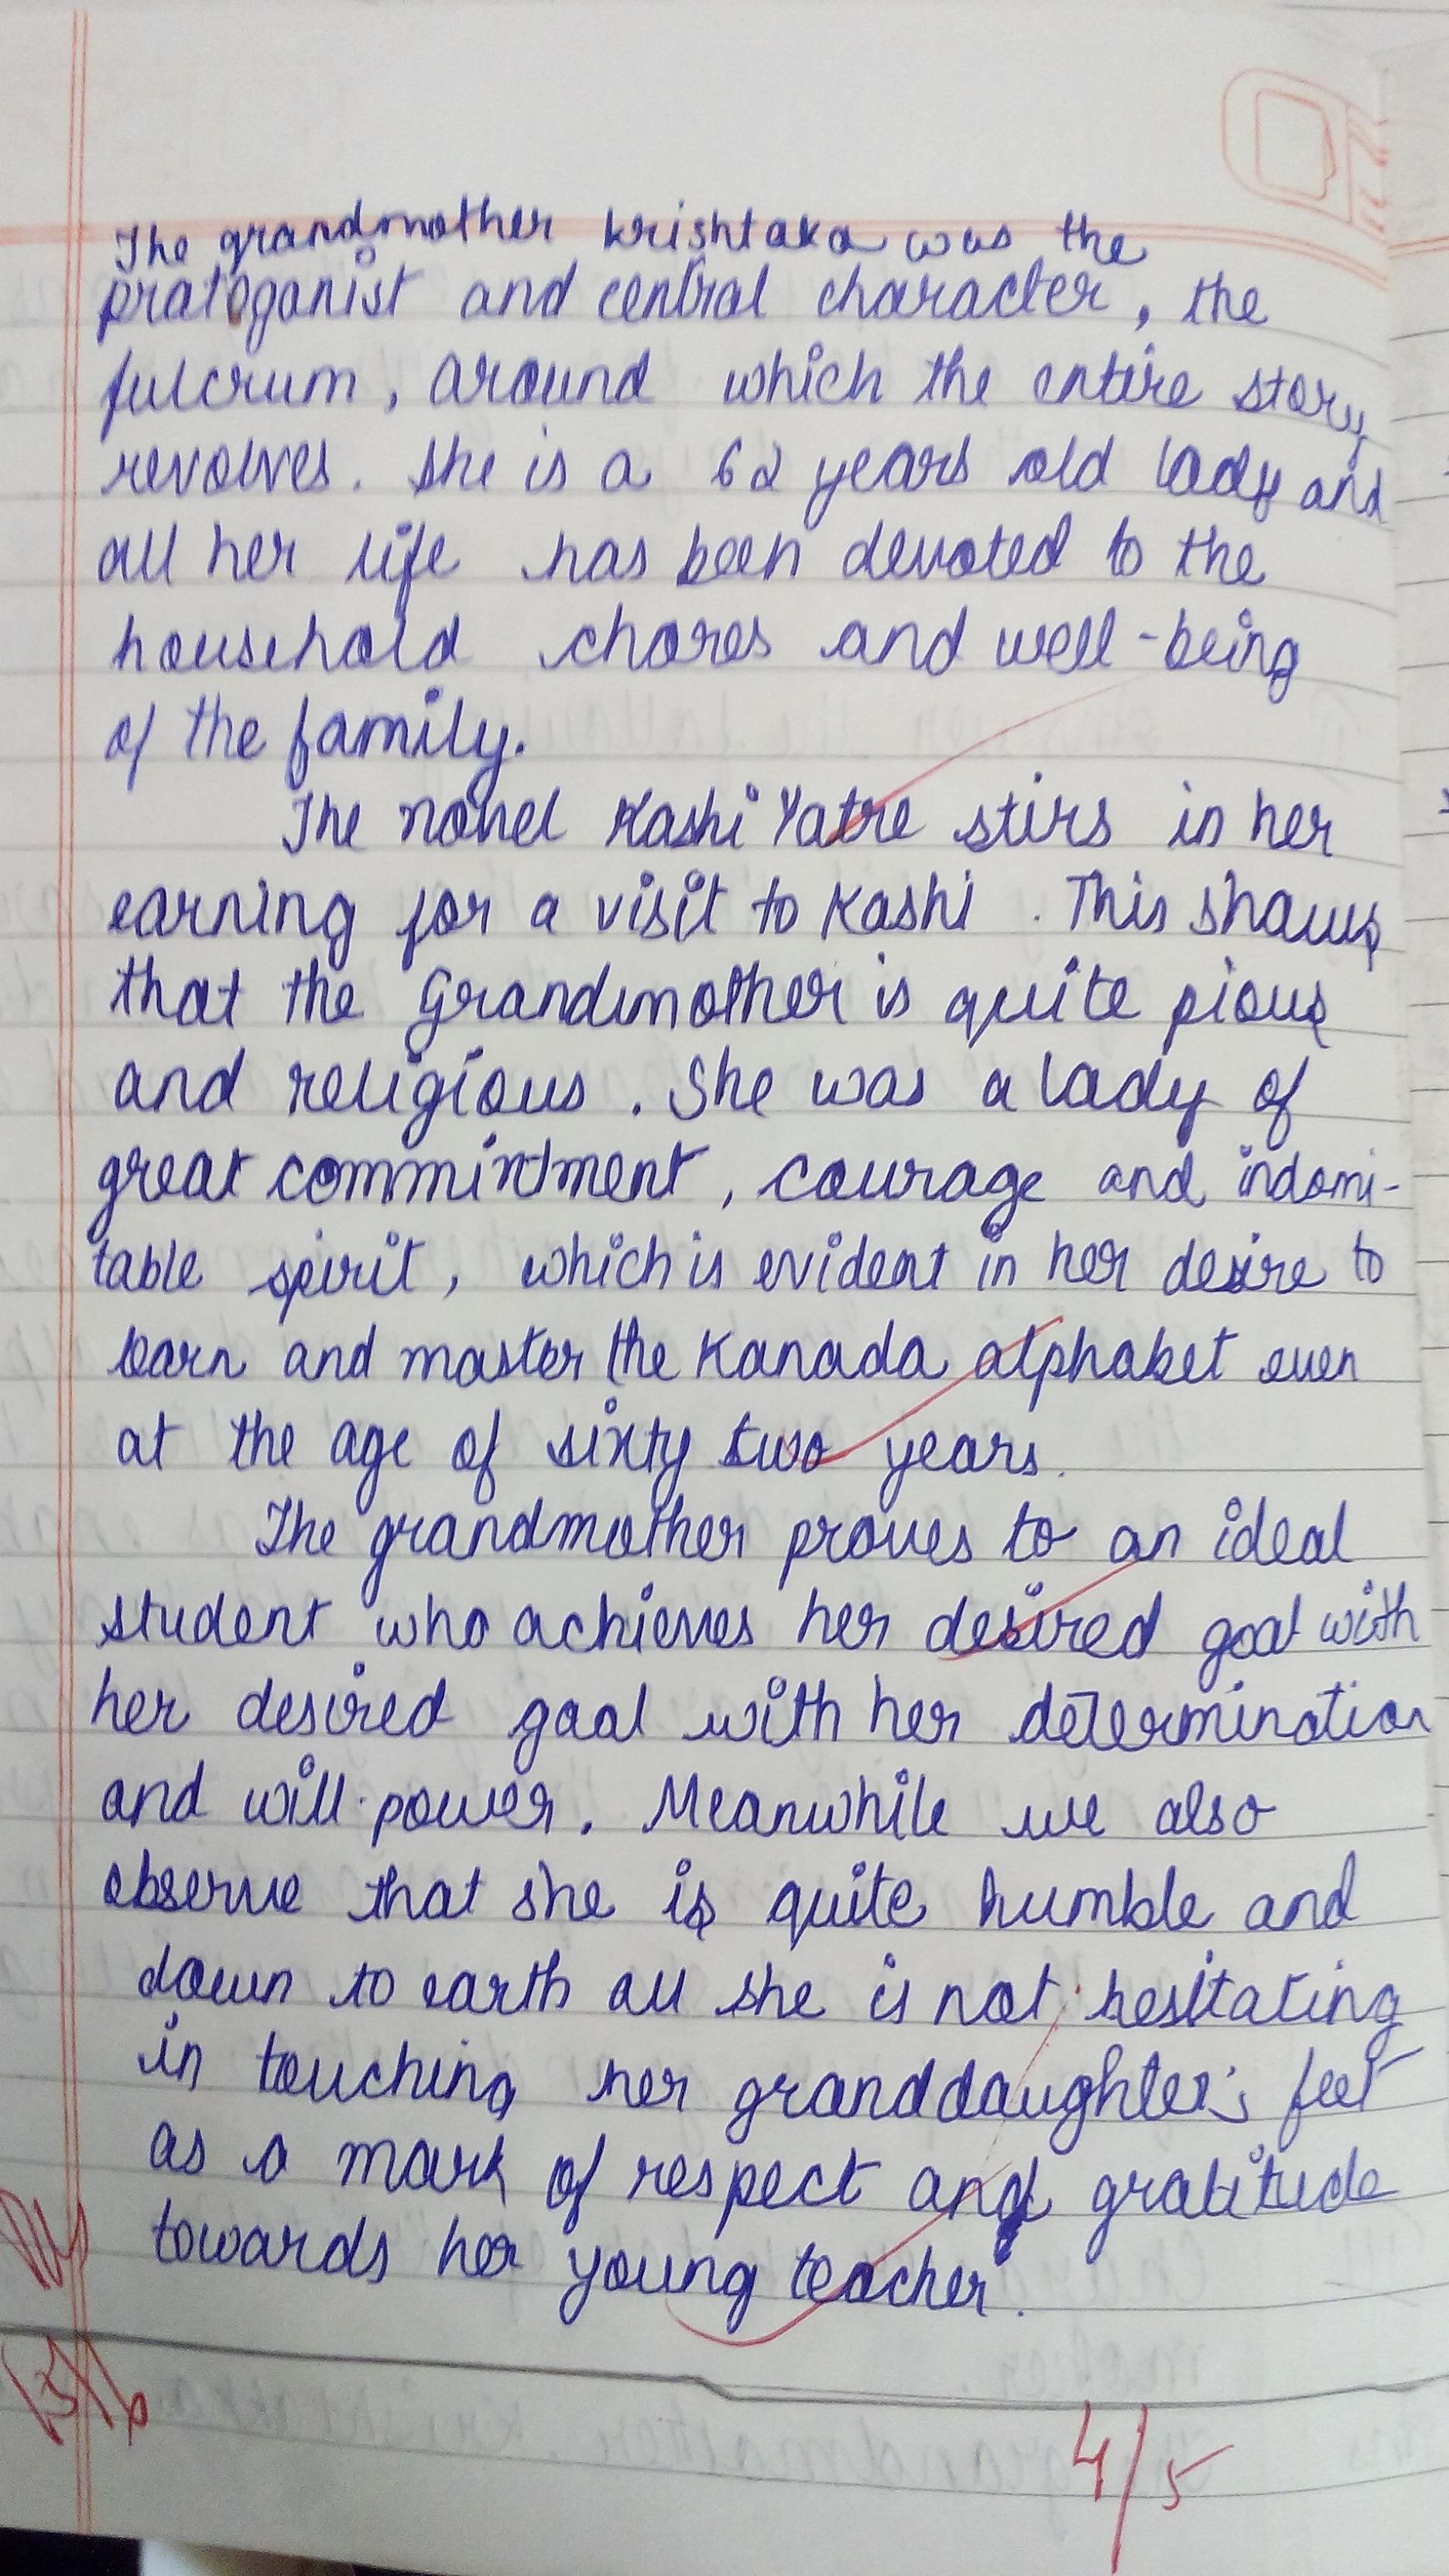 The grandmother krishtaka was the
pratoganist and central character, the
fulcrum, around which the entire story
revolves. She is a 62 years old lady and
all her life has been devoted to the
household chores and well-being
of the family.
The novel Kashi Yatre stirs in her
earning for a visit to Kashi. This shows
that the Grandmother is quite pious
and religious. She was a lady of
great commintment, courage and indomi-
table spirit, which is evident in her desire to
learn and master the Kanada alphabet even
at the age of sixty two years.
The grandmother proves to an ideal
student who achieves her desired goal with
her desired goal with her determination
and will-power. Meanwhile we also
observe that she is quite humble and
down to earth all she is not hesitating
in touching her granddaughter's feet
as a mark of respect and gratitude
towards her young teacher.
4/5